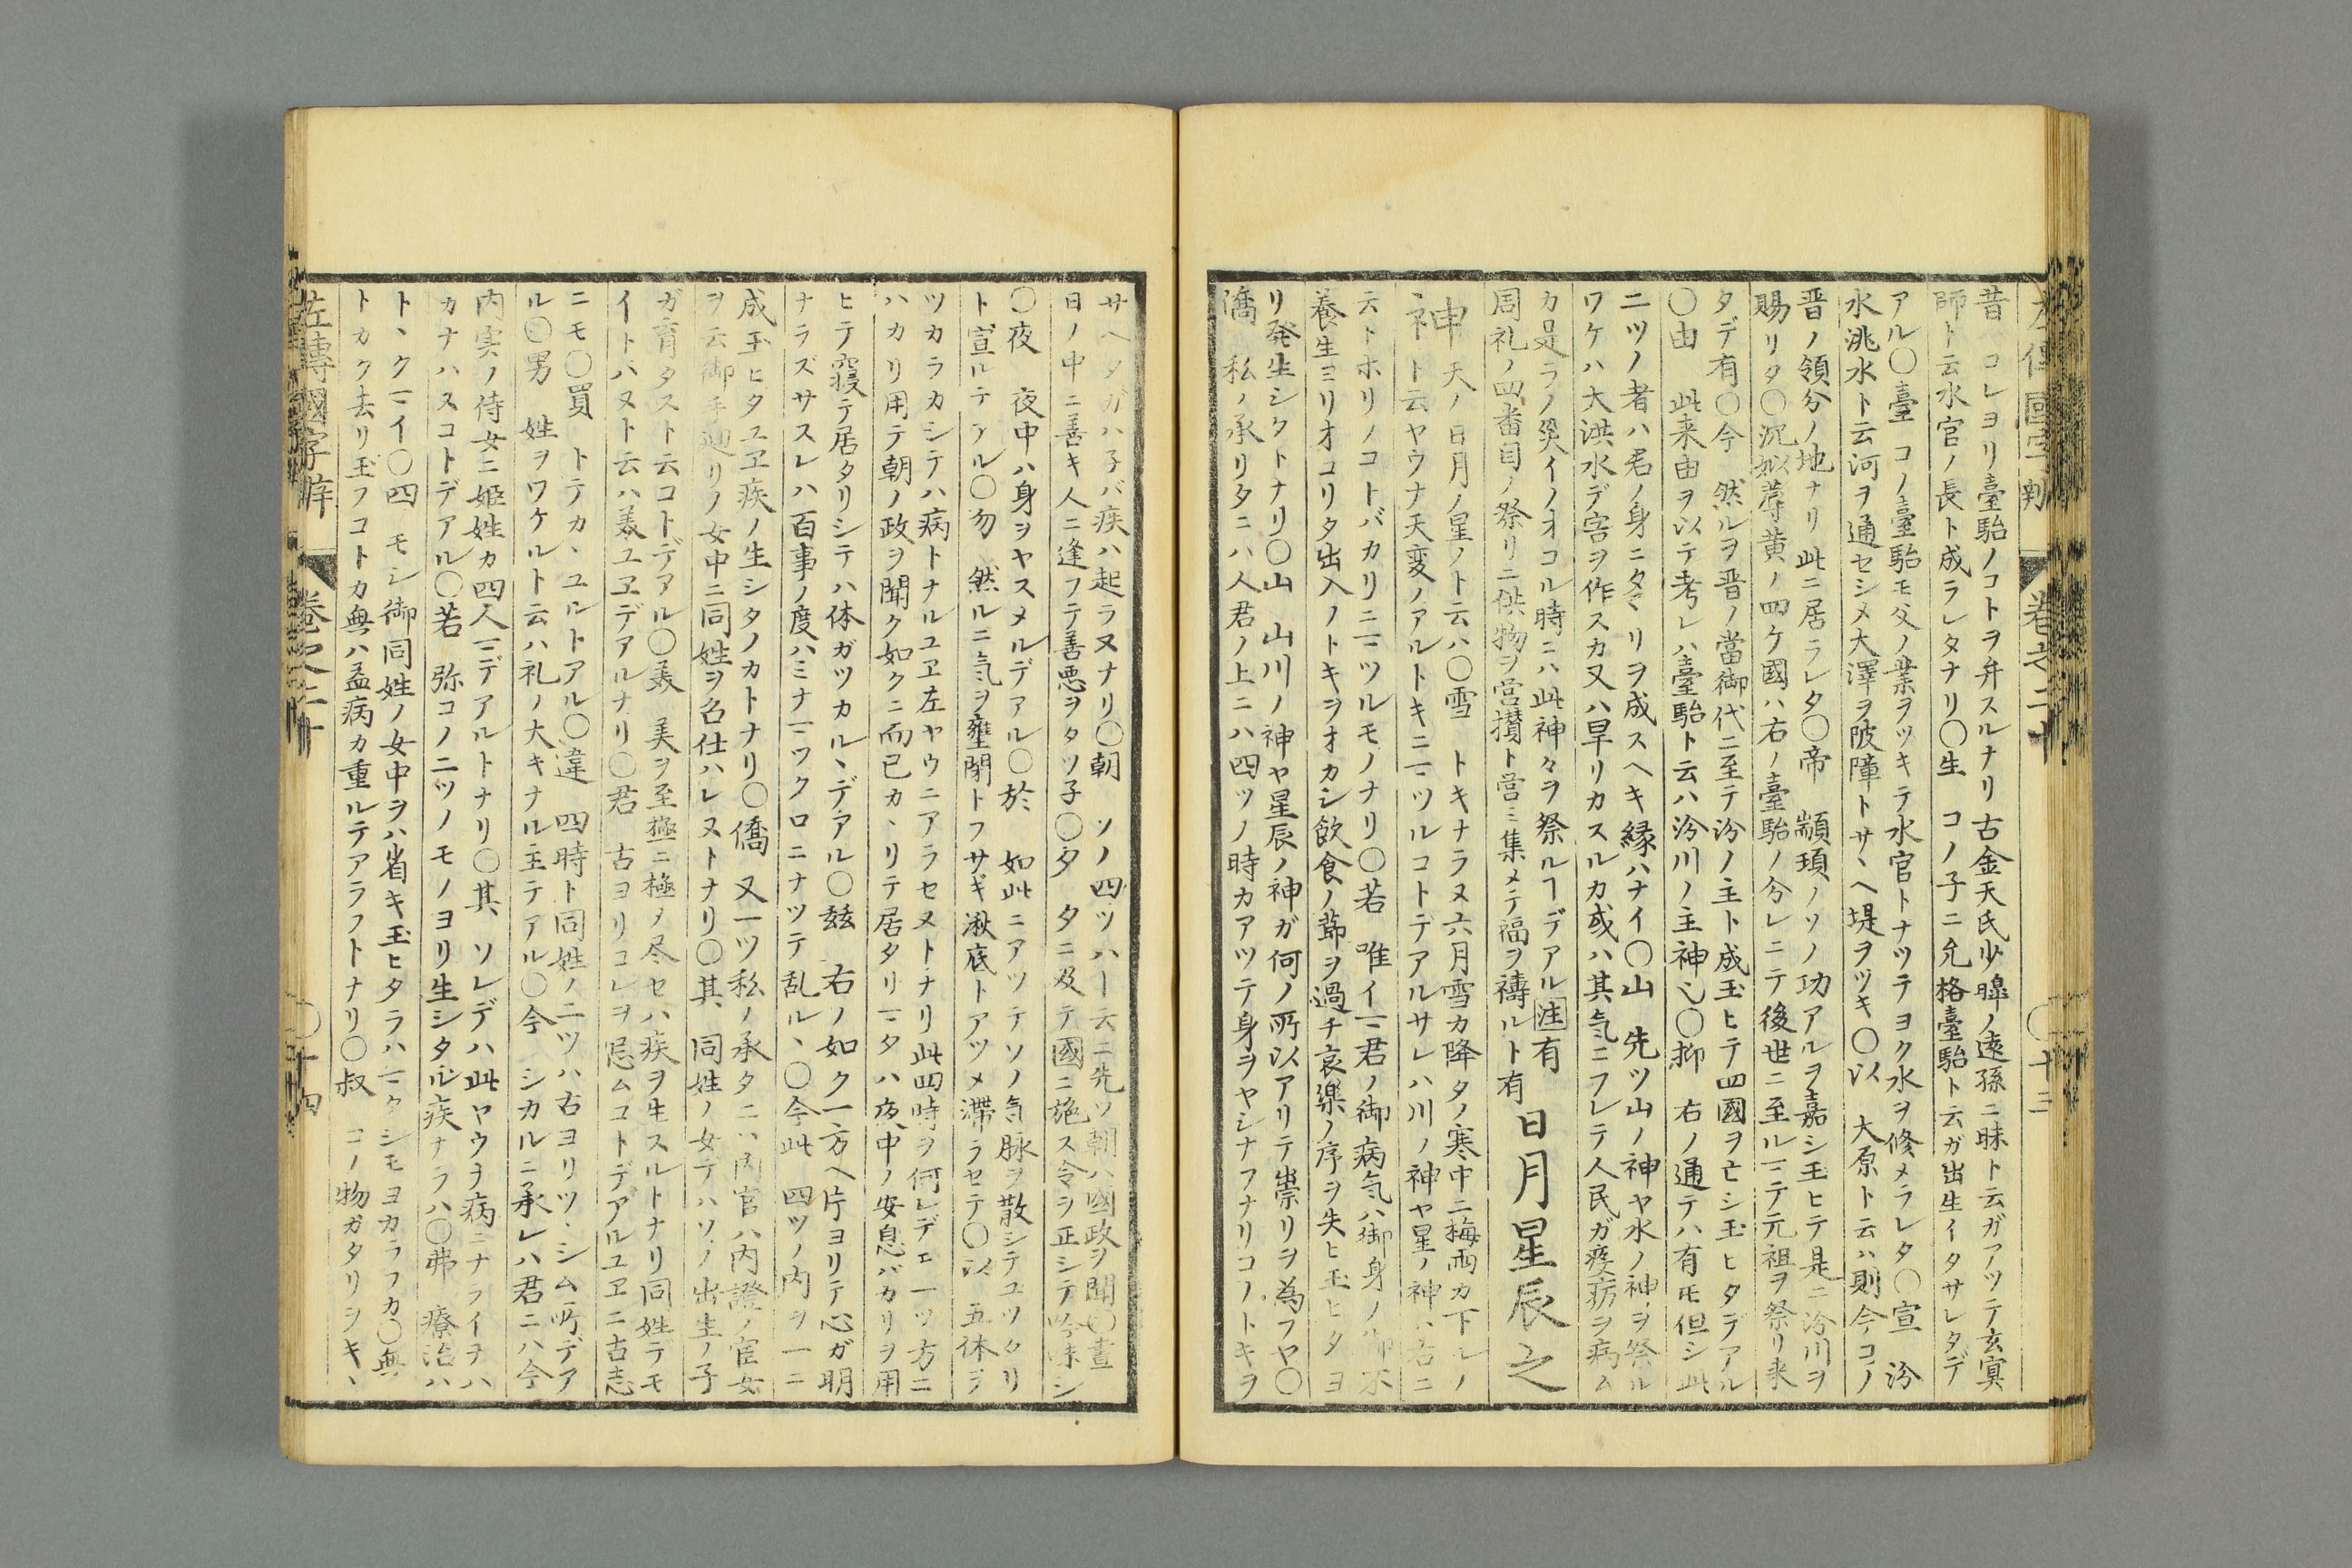 左傳國字辨 卷之二十 〇十三
昔 コレヨリ臺駘ノコトヲ弁スルナリ古金天氏少皥ノ遠孫ニ昧ト云ガアツテ玄冥
師ト云水官ノ長ト成ラレタナリ〇生 コノ子ニ允格臺駘ト云ガ出生イタサレタデ
アル〇臺 コノ臺駘モ父ノ業ヲツキテ水官トナツテヨク水ヲ修メラレタ〇宣 汾
水洮水ト云河ヲ通セシメ大澤ヲ陂障トサヽヘ堤ヲツキ〇以 大原ト云ハ則今コノ
晋ノ領分ノ地ナリ此ニ居ラレタ〇帝 顓頊ノソノ功アルヲ嘉シ玉ヒテ是ニ汾川ヲ
賜リタ〇沉姒蓐黄ノ四ケ國ハ右ノ臺駘ノ分レニテ後世ニ至ルヿテ元祖ヲ祭リ来
タデ有〇今 然ルヲ晋ノ當御代ニ至テ汾ノ主ト成玉ヒテ四國ヲ亡シ玉ヒタデアル
〇由 此来由ヲ以テ考レハ臺駘ト云ハ汾川ノ主神也〇抑 右ノ通テハ有モ但シ此
二ツノ者ハ君ノ身ニタヽリヲ成スヘキ縁ハナイ〇山 先ツ山ノ神ヤ水ノ神ヲ祭ル
ワケハ大洪水デ害ヲ作スカ又ハ旱リカスルカ或ハ其気ニフレテ人民ガ疫癘ヲ病ム
カ是ラノ災イノオコル時ニハ此神々ヲ祭ルヿデアル注有
周礼ノ四番目ノ祭リニ供物ヲ営攅ト営ミ集メテ福ヲ禱ルト有
日月星辰之
神 天ノ日月ノ星ノト云ハ〇雪 トキナラヌ六月雪カ降タノ寒中ニ梅雨カ下ルノ
ト云ヤウナ天変ノアルトキニマツルコトデアルサレハ川ノ神ヤ星ノ神ハ右ニ
云トホリノコトバカリニマツルモノナリ〇若 唯イマ君ノ御病気ハ御身ノ御不
養生ヨリオコリタ出入ノトキヲオカシ飲食ノ節ヲ過チ哀樂ノ序ヲ失ヒ玉ヒタヨ
リ発生シタトナリ〇山 山川ノ神ヤ星辰ノ神ガ何ノ所以アリテ祟リヲ為フヤ〇
僑 私ノ承リタニハ人君ノ上ニハ四ツノ時カアツテ身ヲヤシナフナリコノトキヲ
サヘタガハ子バ疾ハ起ラヌナリ〇朝 ソノ四ツハ一云ニ先ツ朝ハ國政ヲ聞〇晝
日ノ中ニ善キ人ニ逢フテ善悪ヲタツ子〇夕 タニ及テ國ニ施ス令ヲ正シテ吟味シ
〇夜 夜中ハ身ヲヤスメルデアル〇於 如此ニアツテソノ気脉ヲ散シテユツタリ
ト宣ルテアル〇勿 然ルニ気ヲ壅閉トフサギ湫底トアツメ滞ラセテ〇以 五体ヲ
ツカラカシテハ病トナルユヱ左ヤウニアラセヌトナリ此四時ヲ何レデェ一ツ方ニ
ハカリ用テ朝ノ政ヲ聞ク如クニ而已カヽリテ居タリマタハ夜中ノ安息バカリヲ用
ヒテ寝テ居タリシテハ体ガツカルヽデアル〇茲 右ノ如ク一方ヘ片ヨリテ心ガ明
ナラズサスレハ百事ノ度ハミナマツクロニナツテ乱ルヽ〇今此 四ツノ内ヲ一ニ
成玉ヒタユヱ疾ノ生シタノカトナリ〇僑 又一ツ私ノ承タニハ内官ハ内證ノ宦女
ヲ云御手廻リノ女中ニ同姓ヲ名仕ハレヌトナリ〇其 同姓ノ女テハソノ出生ノ子
ガ育タスト云コトデアル〇美 美ヲ至極ニ極メ尽セハ疾ヲ生スルトナリ同姓デモ
イトハヌト云ハ美ユヱデアルナリ〇君 古ヨリコレヲ忌ムコトデアルユヱニ古志
ニモ〇買 トテカヽユルトアル〇違 四時ト同姓ノ二ツハ古ヨリツヽシム所デア
ル〇男 姓ヲワケルト云ハ礼ノ大キナル主テアル〇今 シカルニ承レハ君ニハ今
内実ノ侍女ニ姫姓カ四人マデアルトナリ〇其 ソレデハ此ヤウヲ病ニナライテハ
カナハスコトデアル〇若 弥コノ二ツノモノヨリ生シタル疾ナラハ〇弗 療治ハ
トヽクマイ〇四 モシ御同姓ノ女中ヲハ省キ玉ヒタラハマタシモヨカラフカ〇無
トカク去リ玉フコトカ無ハ孟病カ重ルテアラフトナリ〇叔 コノ物ガタリヲキヽ
左傳國字辨 卷之二十 〇十四